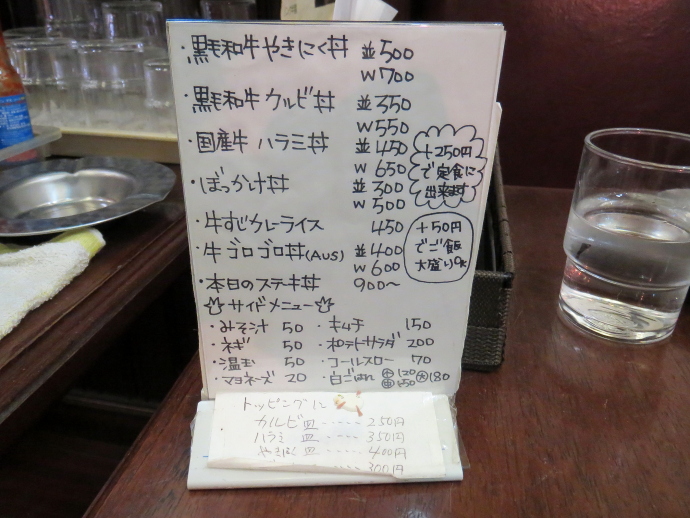 ・黒毛和牛やきにく丼 並500
W700
・黒毛和牛カルビ丼 並350
W550
・国産牛 ハラミ丼 並450
W650
・ぼっかけ丼 並300
W500
・牛すじカレーライス 450
・牛ゴロゴロ丼(AUS) 並400
W600
・本日のステーキ丼 900〜
+250円
で定食に
出来ます
+50円
でご飯
大盛りOK
サイドメニュー
・みそ汁 50 ・キムチ 150
・ネギ 50 ・ポテトサラダ 200
・温玉 50 ・コールスロー 70
・マヨネーズ 20 ・白ごはん 小120 中150 大180
トッピングに
カルビ皿-----250円
ハラミ皿----350円
やきにく皿----400円
300円